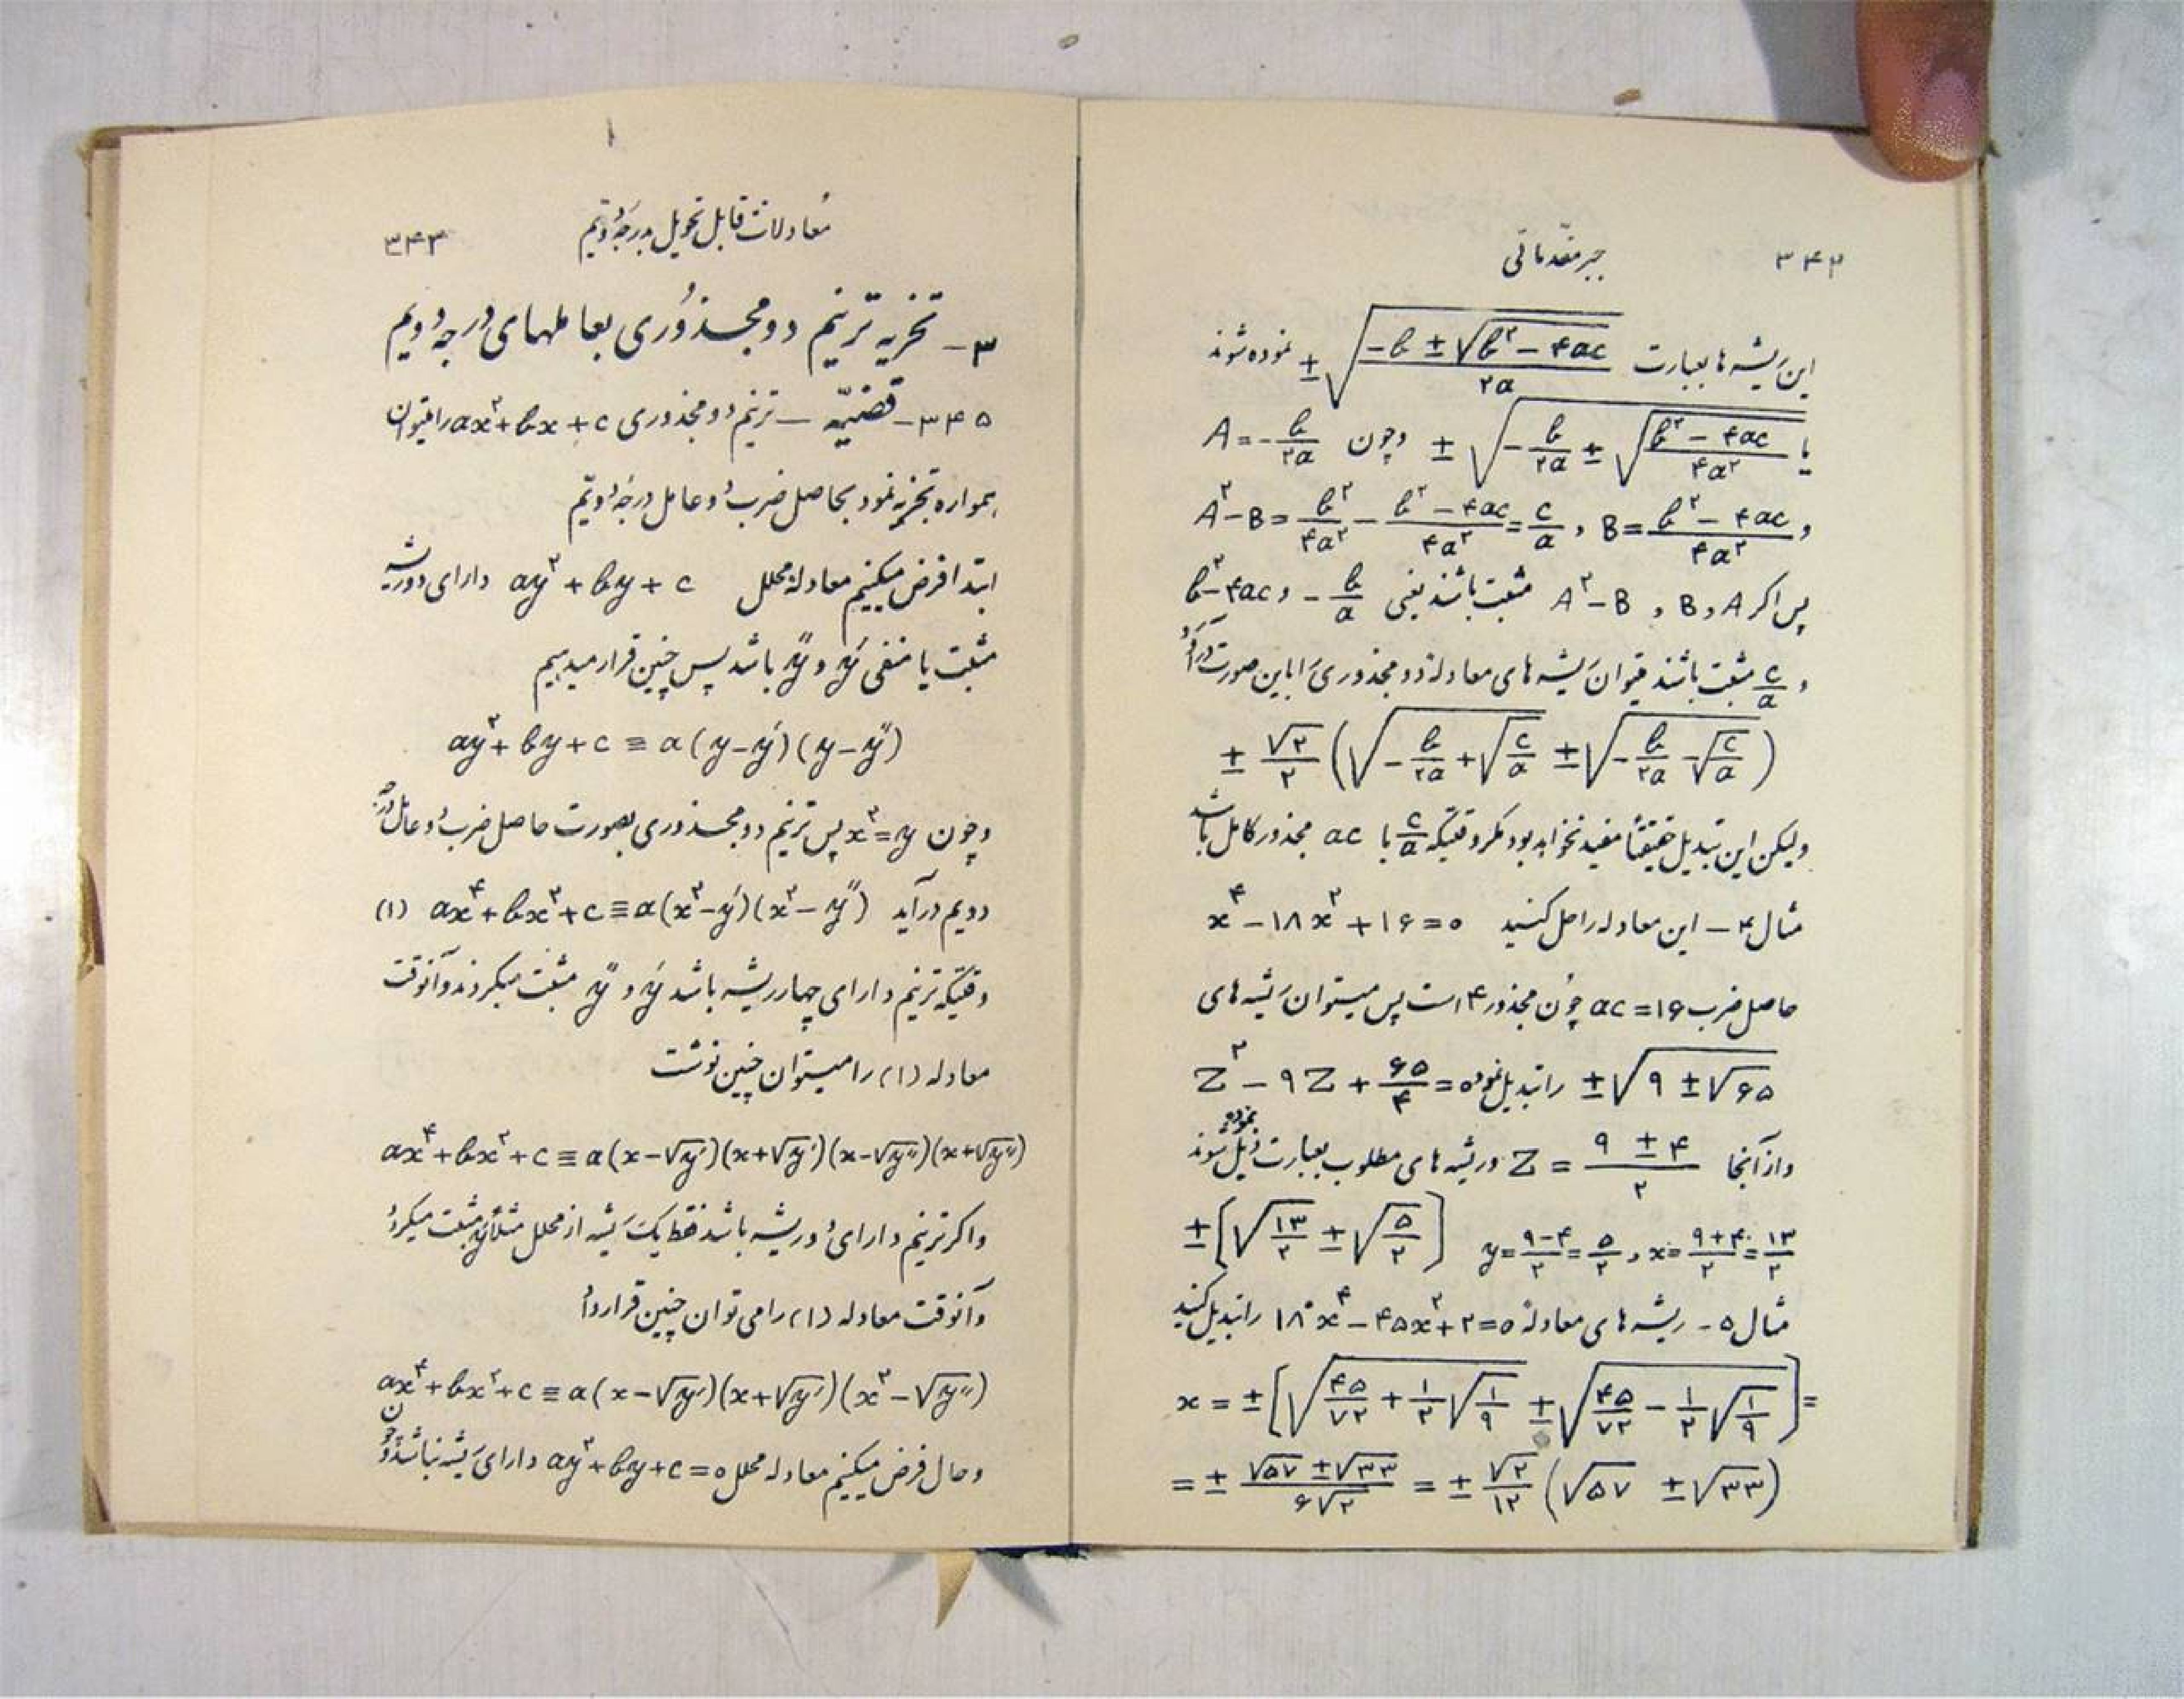 ۳۴۲ جبر مقدماتی
این ریشه ها بعبارت ±√((-b ± √(b² - ۴ac))/۲a) نموده شوند
یا ±√(-b/۲a ± √((b² - ۴ac)/۴a²)) وچون A = -b/۲a
و B = (b² - ۴ac)/۴a² و A² - B = b²/۴a² - (b² - ۴ac)/۴a² = c/a
پس اگر A و B و A² - B مثبت باشند یعنی -b/a و b² - ۴ac
و c/a مثبت باشند میتوان ریشه های معادلۀ دو مجذوری را باین صورت درآورد
± √۲/۲ (√(-b/۲a + √(c/a)) ± √(-b/۲a - √(c/a)))
ولیکن این تبدیل حقیقتاً مفید نخواهد بود مگر وقتیکه c/a یا ac مجذور کامل باشد
مثال ۴ - این معادله را حل کنید x⁴ - ۱۸x² + ۱۶ = ۰
حاصل ضرب ac = ۱۶ چون مجذور ۴ است پس میتوان ریشه های
±√(۹ ± √۶۵) را تبدیل نمود Z² - ۹Z + ۶۵/۴ = ۰
واز آنجا Z = (۹ ± ۴)/۲ وریشه های مطلوب بعبارت ذیل نموده شوند
x = (۹+۴)/۲ = ۱۳/۲ و y = (۹-۴)/۲ = ۵/۲ ±[√(۱۳/۲) ± √(۵/۲)]
مثال ۵ - ریشه های معادلۀ ۱۸x⁴ - ۴۵x² + ۲ = ۰ را تبدیل کنید
x = ±[√(۴۵/۷۲ + ۱/۲√(۱/۹)) ± √(۴۵/۷۲ - ۱/۲√(۱/۹))] =
= ± (√۵۷ ± √۳۳)/۶√۲ = ± √۲/۱۲ (√۵۷ ± √۳۳)
معادلات قابل تحویل بدرجۀ دویم ۳۴۳
۳- تجزیه ترینم دو مجذوری بعاملهای درجۀ دویم
۳۴۵- قضیّه - ترینم دو مجذوری ax² + bx + c را میتوان
همواره تجزیه نمود بحاصل ضرب دو عامل درجۀ دویم
ابتدا فرض میکنیم معادلۀ محلل ay² + by + c دارای دو ریشه
مثبت یا منفی y′ و y″ باشد پس چنین قرار میدهیم
ay² + by + c ≡ a(y - y′)(y - y″)
وچون x² = y پس ترینم دو مجذوری بصورت حاصل ضرب دو عامل درجۀ
دویم درآید ax⁴ + bx² + c ≡ a(x² - y′)(x² - y″) (۱)
وقتیکه ترینم دارای چهار ریشه باشد y′ و y″ مثبت میگردند وآنوقت
معادله (۱) را میتوان چنین نوشت
ax⁴ + bx² + c ≡ a(x - √y′)(x + √y′)(x - √y″)(x + √y″)
واگر ترینم دارای دو ریشه باشد فقط یک ریشه از محلل مثلاً y′ مثبت میگردد
وآنوقت معادله (۱) را می توان چنین قرار داد
ax⁴ + bx² + c ≡ a(x - √y′)(x + √y′)(x² - √y″)
وحال فرض میکنیم معادله محلل ay² + by + c = ۰ دارای ریشه نباشد وچون